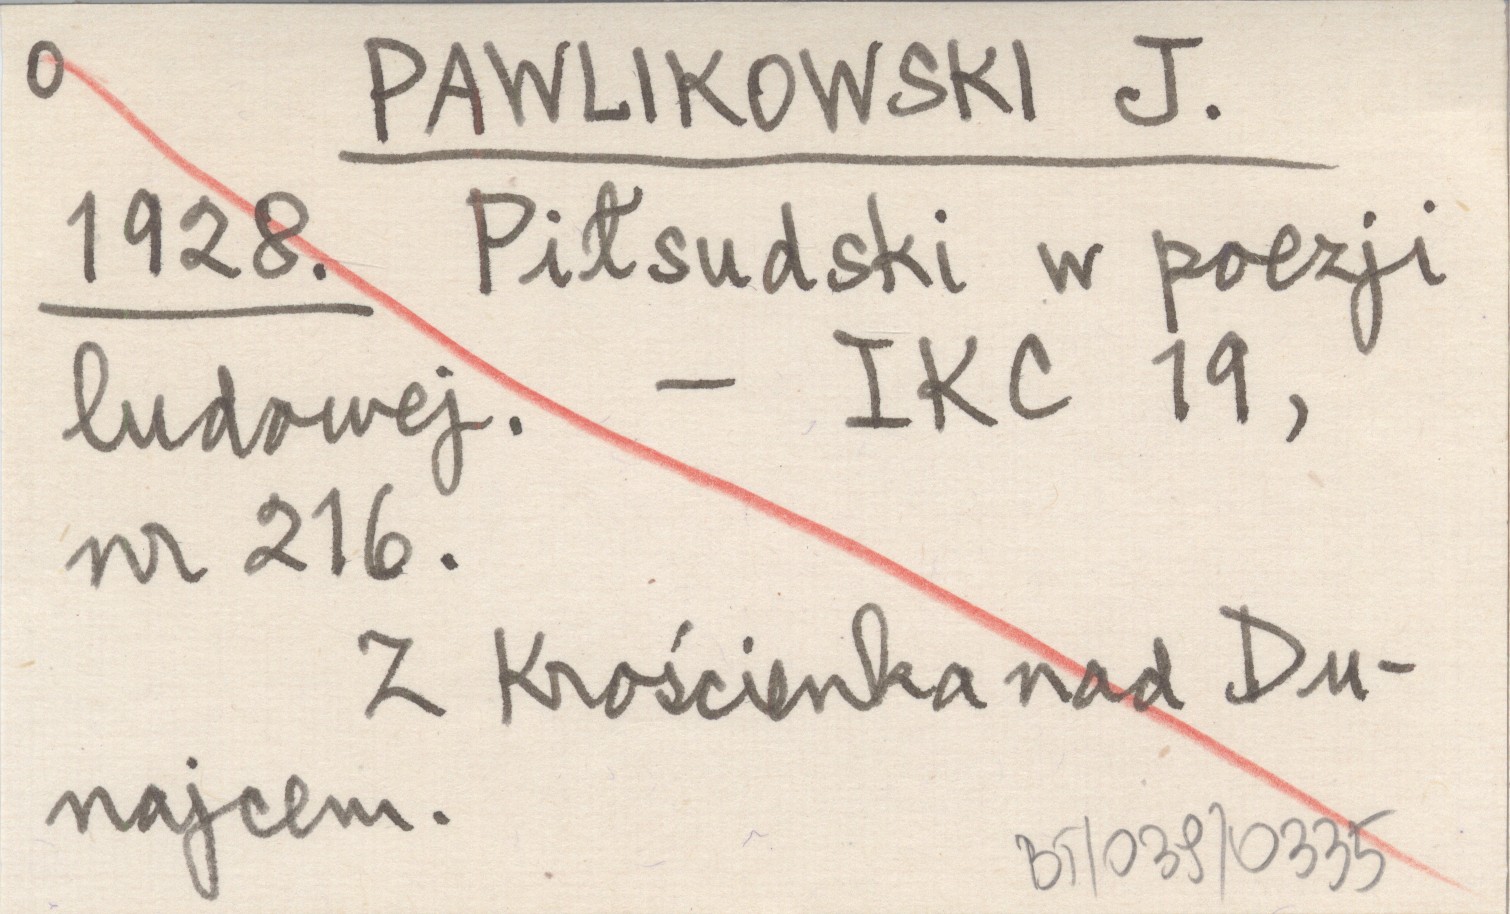 O PAWLIKOWSKI J.
1928. Piłsudski w poezji
ludowej. – IKC 19,
nr 216.
Z Krościenka nad Du-
najcem.
BT/039/0335